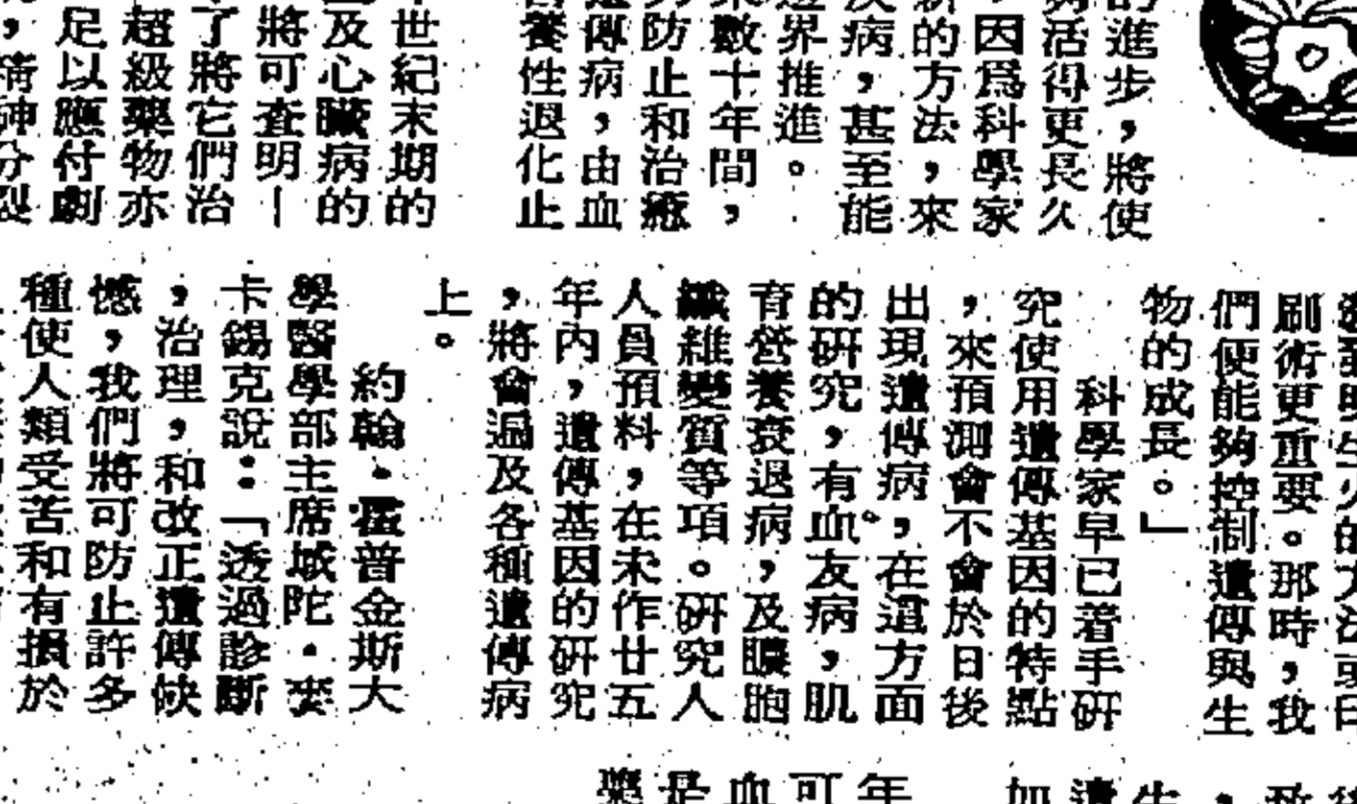 的進步，將使
活得更長久
，因爲科學家
新的方法，來
病，甚至能
界推進。
數十年間，
防止和治癒
遺傳病，由血
養性退化止
世紀末期的
及心臟病的
將可查明｜
了將它們治
超級藥物亦
足以應付劇
，精神分裂
刷術更重要。那時，我
們便能夠控制遺傳與生
物的成長。」
科學家早已着手研
究使用遺傳基因的特點
，來預測會不會於日後
出現遺傳病，在這方面
的研究，有血友病，肌
育營養衰退病，及膿胞
纖維變質等項。研究人
人員預料，在未作廿五
年內，遺傳基因的研究
，將會遍及各種遺傳病
上。
約翰·霍普金斯大
學醫學部主席域陀·麥
卡錫克說：「透過診斷
，治理，和改正遺傳缺
憾，我們將可防止許多
種使人類受苦和有損於
年
可
血
是